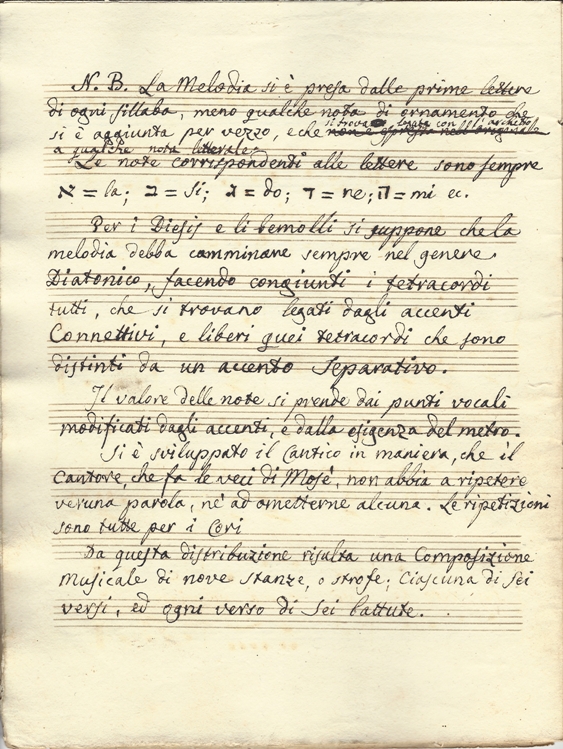 N. B. La Melodia si è presa dalle prime lettere
di ogni sillaba, meno qualche nota di ornamento che
si trova legata con gli archetti
si è aggiunta per vezzo, e che non è espressa nell'originale
a qualche nota litterale
Le note corrispondenti alle lettere sono sempre
א = la; ב = si; ג = do; ד = re; ה = mi ec.
Per i Diesis e li bemolli si suppone che la
melodia debba camminare sempre nel genere
Diatonico, facendo congiunti i tetracordi
tutti, che si trovano legati dagli accenti
Connettivi, e liberi quei tetracordi che sono
distinti da un accento Separativo.
Il valore delle note si prende dai punti vocali
modificati dagli accenti, e dalla esigenza del metro.
Si è sviluppato il Cantico in maniera, che il
Cantore, che fa le veci di Mosè, non abbia a ripetere
veruna parola, nè ad ometterne alcuna. Le ripetizioni
sono tutte per i Cori
Da questa distribuzione risulta una Composizione
Musicale di nove stanze, o strofe; Ciascuna di sei
versi, ed ogni verso di sei battute.